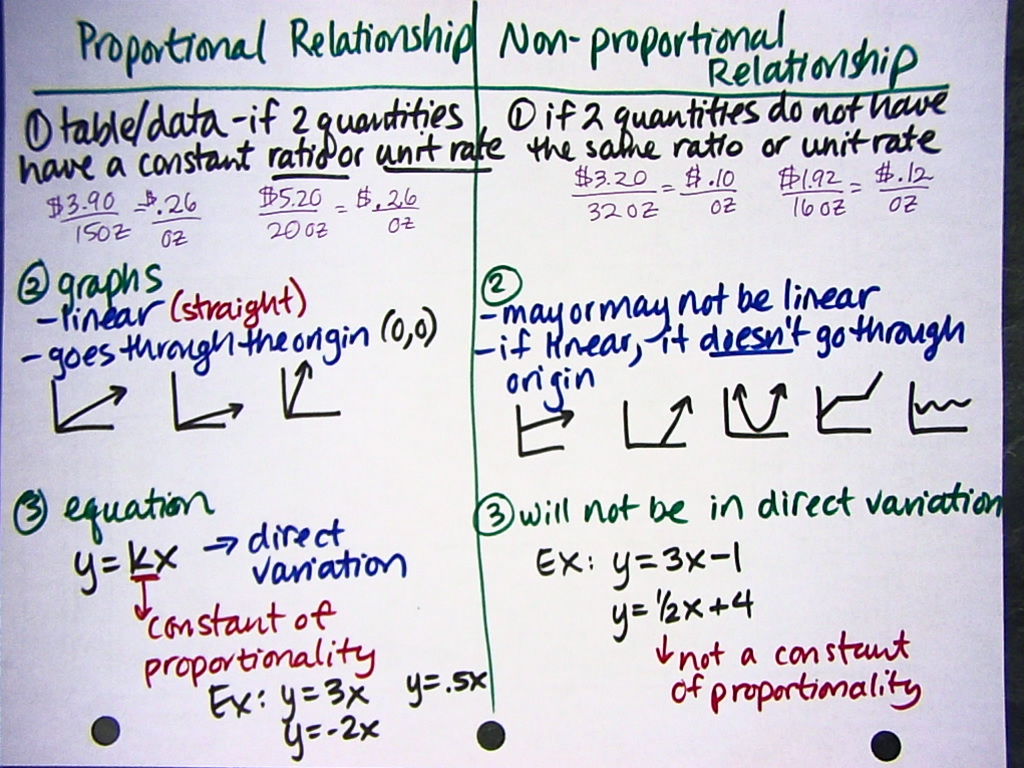 Proportional Relationship
① table/data - if 2 quantities
have a constant ratio or unit rate
$3.90/15oz = $.26/oz   $5.20/20oz = $.26/oz
② graphs
- linear (straight)
- goes through the origin (0,0)
③ equation
y = kx → direct
variation
constant of
proportionality
Ex: y = 3x   y = .5x
y = -2x
Non-proportional
Relationship
① if 2 quantities do not have
the same ratio or unit rate
$3.20/32oz = $.10/oz   $1.92/16oz = $.12/oz
②
- may or may not be linear
- if linear, it doesn't go through
origin
③ will not be in direct variation
Ex: y = 3x - 1
y = 1/2x + 4
↓ not a constant
of proportionality